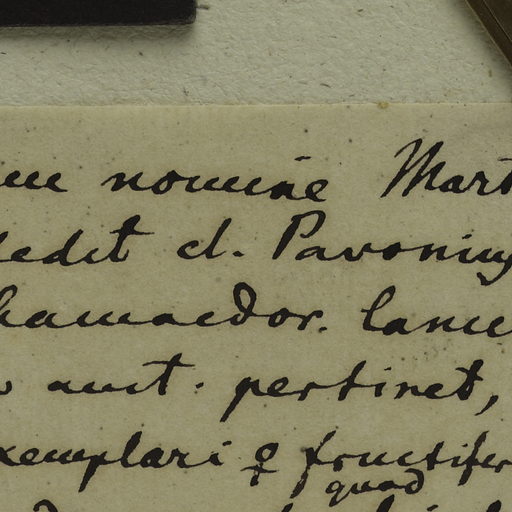 nomine Mart
dedit cl. Pavonius
hamaedor. lance
auct. pertinet,
xemplari ♀ fructifer
quod